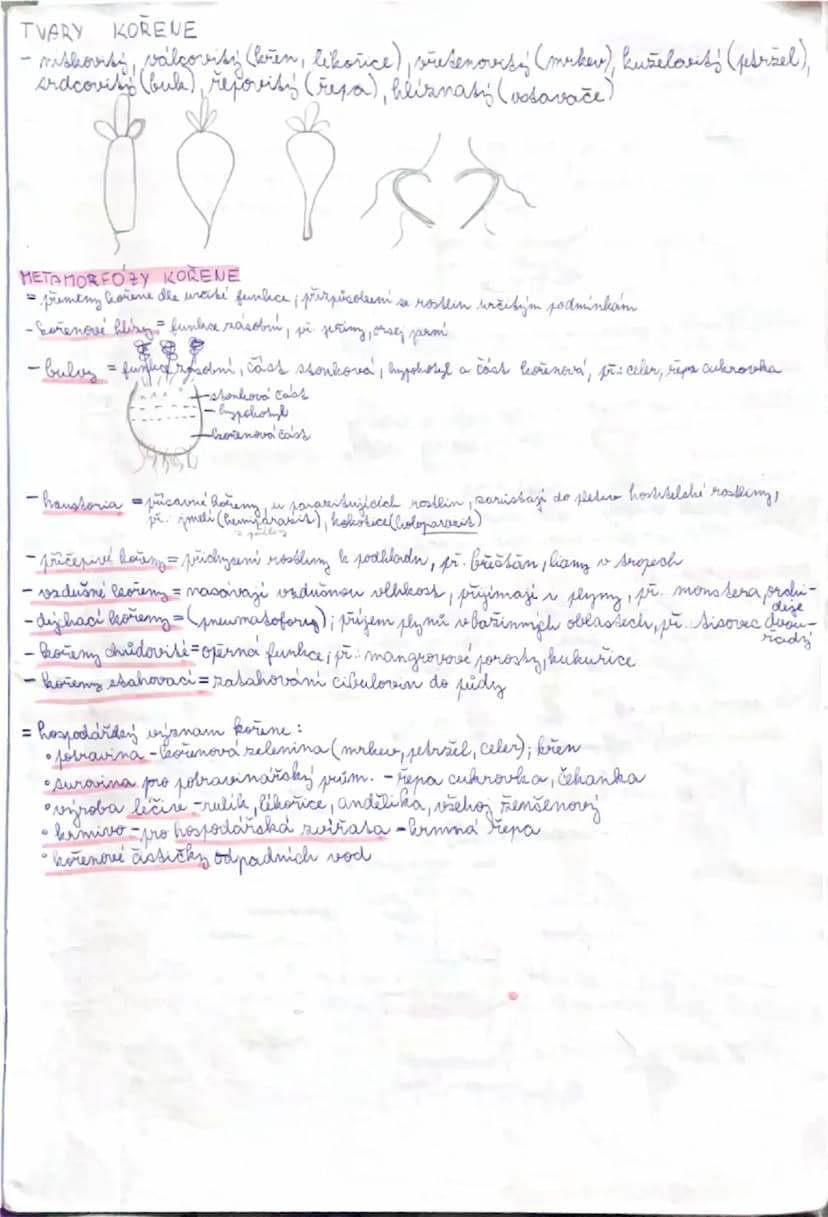 TVARY KOŘENE
- nitkovitý, válcovitý (křen, lékořice), vřetenovitý (mrkev), kuželovitý (petržel),
srdcovitý (buk), řepovitý (řepa), hlíznatý (vstavače)
METAMORFÓZY KOŘENE
= přeměny kořene dle určité funkce, přizpůsobení se rostlin určitým podmínkám
- kořenové hlízy = funkce zásobní, př. jiřiny, orsej jarní
- bulvy = funkce zásobní, část stonková, hypokotyl a část kořenová, př: celer, řepa cukrovka
stonková část
hypokotyl
kořenová část
- haustoria = přísavné kořeny, u parazitujících rostlin, zarůstají do pletiv hostitelské rostliny,
př. jmelí (hemiparazit), kokotice (holoparazit)
- příčepivé kořeny = přichycení rostliny k podkladu, př. břečťan, liany v tropech
- vzdušné kořeny = nasávají vzdušnou vlhkost, přijímají i plyny, př. monstera, orchi-
deje
- dýchací kořeny = (pneumatofory); příjem plynů v bažinných oblastech, př. tisovec dvou-
řadý
- kořeny chůdovité = opěrná funkce; př: mangrovové porosty, kukuřice
- kořeny stahovací = zatahování cibulovin do půdy
= hospodářský význam kořene:
• potravina - kořenová zelenina (mrkev, petržel, celer); křen
• surovina pro potravinářský prům. - řepa cukrovka, čekanka
• výroba léčiv - rulík, lékořice, andělika, všehoj ženšenový
• krmivo - pro hospodářská zvířata - krmná řepa
• kořenové čističky odpadních vod